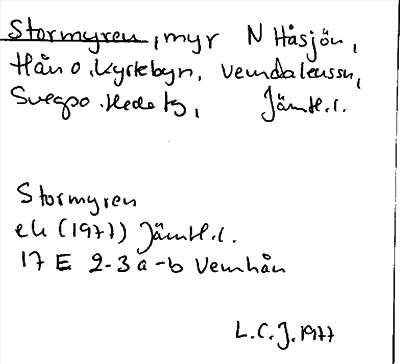 Stormyren, myr N Håsjön,
Hån o. Kyrkebyn, Vemdalenssn,
Svegso. Hede tg, Jämtl.l.
Stormyren
ek (1977) Jämtl.l.
17 E 2-3 a-b Vemhån
L.C.J. 1977